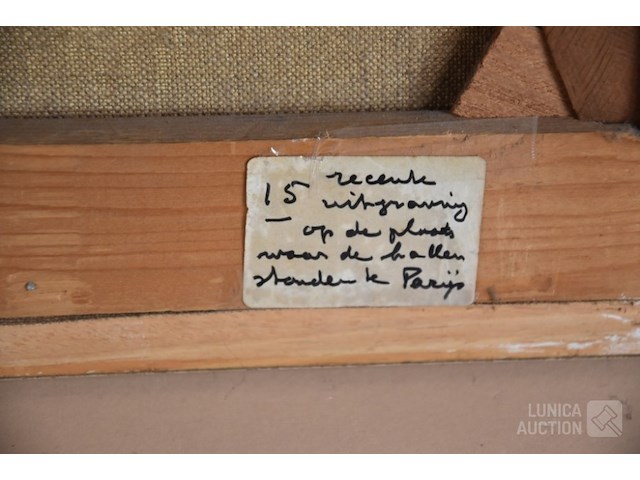 15 recente
uitgraving
op de plaats
waar de hallen
stonden te Parijs
LUNICA
AUCTION